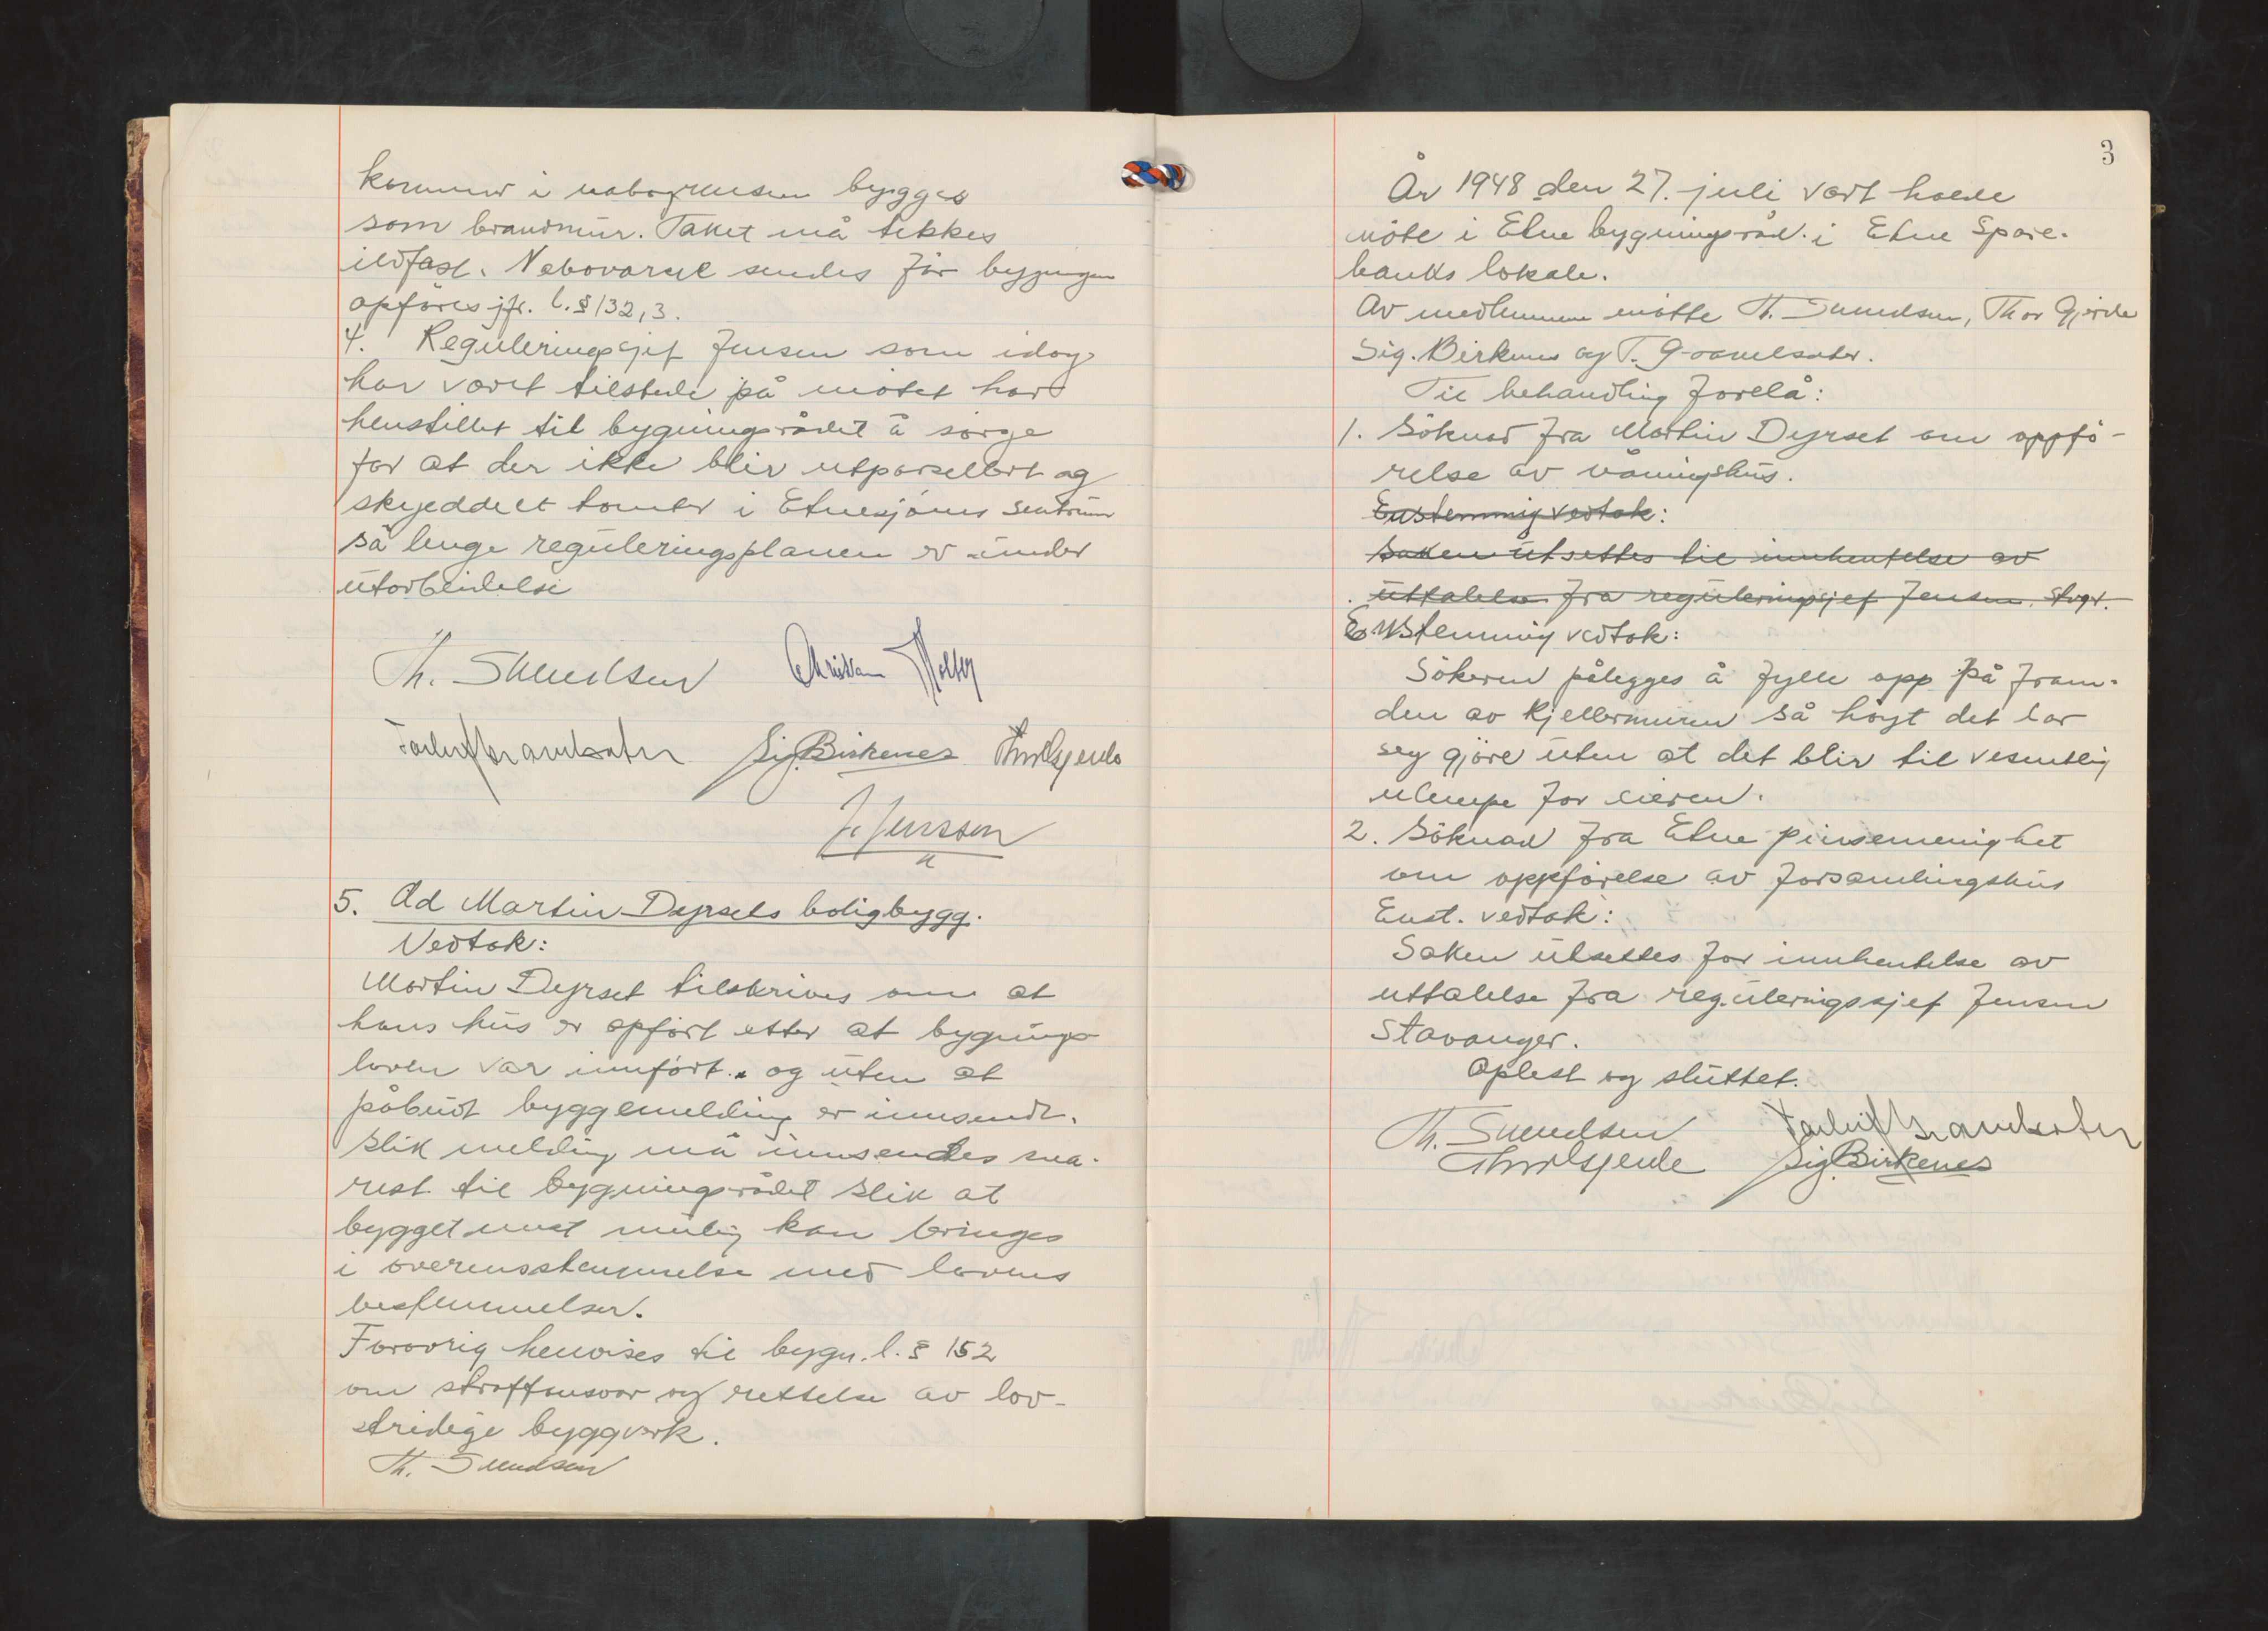 kommer i nabogrensen bygges
som brandmur. Taket må tekkes
ildfast. Nabovarsel sendes før bygningen
opføres jfr. l. § 132,3.
4. Reguleringssjef Jensen som idag
har vært tilstede på møtet har
henstillet til bygningsrådet å sørge
for at der ikke blir utparsellert og
skyeddelt tomter i Etnesjøens sentrum
så lenge reguleringsplanen er under
utarbeidelse
Th. Svendsen Christian
Sig. Birkenes Thor Gjerde
J. Jensson
5. Ad Martin Dyrsets boligbygg.
Vedtak:
Martin Dyrset tilskrives om at
hans hus er opført etter at bygnings
loven var innført. og uten at
påbudt byggemelding er innsendt.
Slik melding må innsendes sna-
rest til bygningsrådet slik at
bygget mest mulig kan bringes
i overensstemmelse med lovens
bestemmelser.
Forøvrig henvises til bygn. l. § 152
om straffansvar og rettelse av lov-
stridige byggverk.
Th. Svendsen
3
År 1948 den 27. juli vart halde
møte i Etne bygningsråd i Etne Spare-
banks lokale.
Av medlemmene møtte Th. Svendsen, Thor Gjerde
Sig. Birkenes og T.
Til behandling forelå:
1. Søknad fra Martin Dyrset om oppfø-
relse av våningshus.
Enstemmig vedtak:
Saken utsettes til innhentelse av
uttalelse fra reguleringssjef Jensen. Stvgr.
Enstemmig vedtak:
Søkeren pålegges å fylle opp på fram-
den av kjellermuren så høyt det lar
seg gjøre uten at det blir til vesentlig
ulempe for eieren.
2. Søknad fra Etne pinsemenighet
om oppførelse av forsamlingshus
Enst. vedtak:
Saken utsettes for innhentelse av
uttalelse fra reguleringssjef Jensen
Stavanger.
Oplest og sluttet.
Th. Svendsen
Thor Gjerde Sig. Birkenes